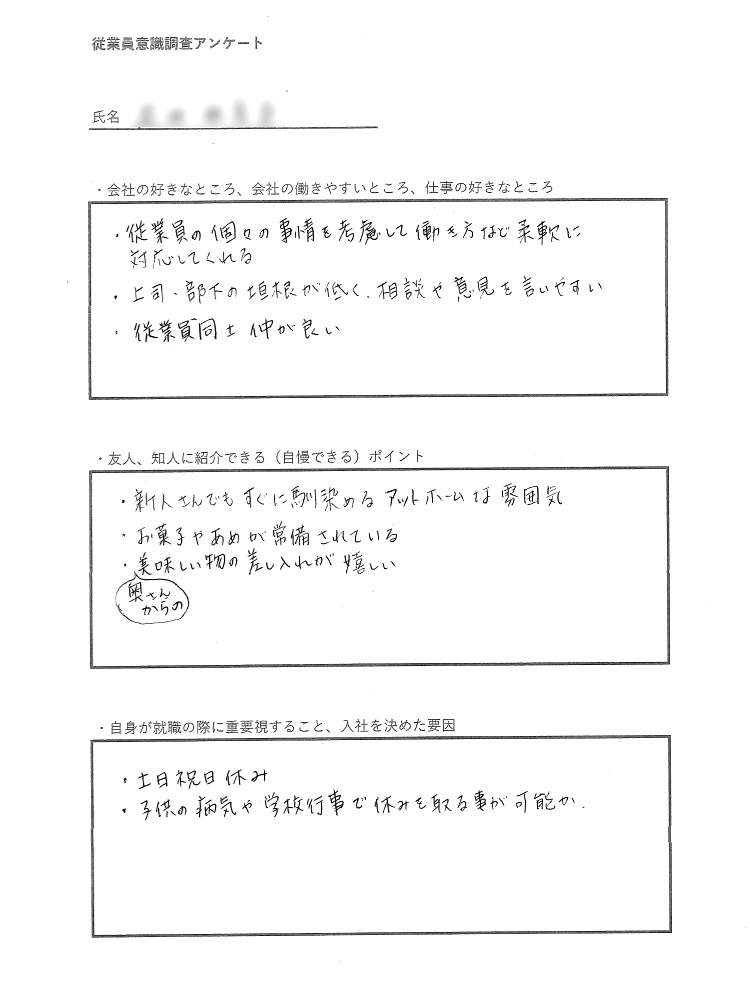 従業員意識調査アンケート
氏名
・会社の好きなところ、会社の働きやすいところ、仕事の好きなところ
・従業員の個々の事情を考慮して働き方など柔軟に
対応してくれる
・上司・部下の垣根が低く、相談や意見を言いやすい
・従業員同士仲が良い
・友人、知人に紹介できる（自慢できる）ポイント
・新人さんでもすぐに馴染めるアットホームな雰囲気
・お菓子やあめが常備されている
・美味しい物の差し入れが嬉しい
奥さん
からの
・自身が就職の際に重要視すること、入社を決めた要因
・土日祝日休み
・子供の病気や学校行事で休みを取る事が可能か.